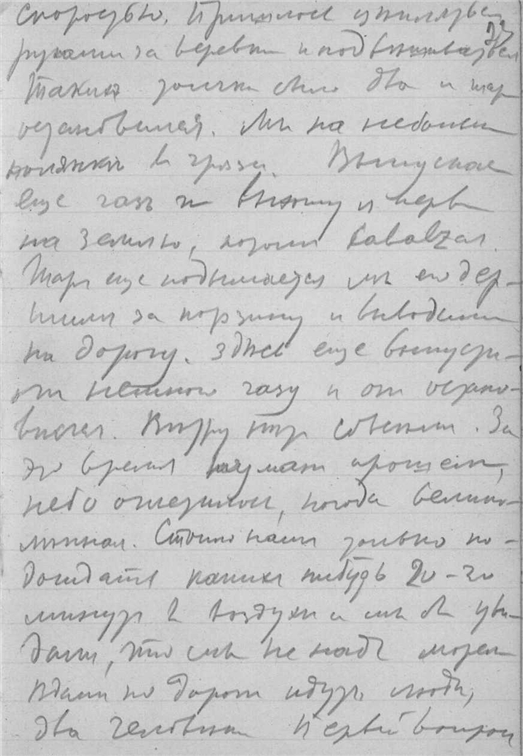 скоростью. Пришлось уцепиться
руками за веревки и подтягиваться
Таких толчков было два и шар
остановился. Мы на небольшой
полянке в грязи. Выпускаем
еще газ и выхожу я первый
на землю, потом Kabalzar.
Шар еще поднимается мы его дер-
жим за корзину и выводим
на дорогу. Здесь еще выпуска-
ют немного газу и он остано-
вился. Вокруг тихо совсем. За
это время туман прошел,
небо очистилось, погода велико-
лепная. Стоило нам только по-
дождать каких нибудь 20-30
минут в воздухе и мы бы уви-
дали, что мы не над морем
Вдали по дороге идут люди,
два человека Первый вопрос